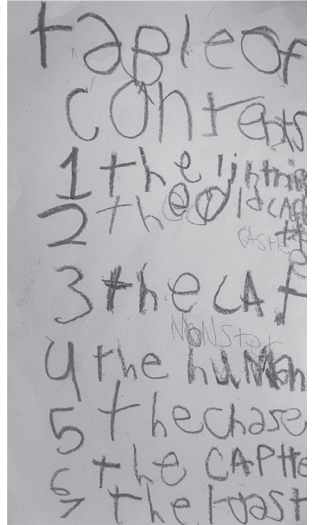 taBleOf
contents
1 the lightnin
2 the old CAS
CASTle
3 the CAT
MONSter
4 the huMan
5 the chase
6 the CAPtte
7 the toast